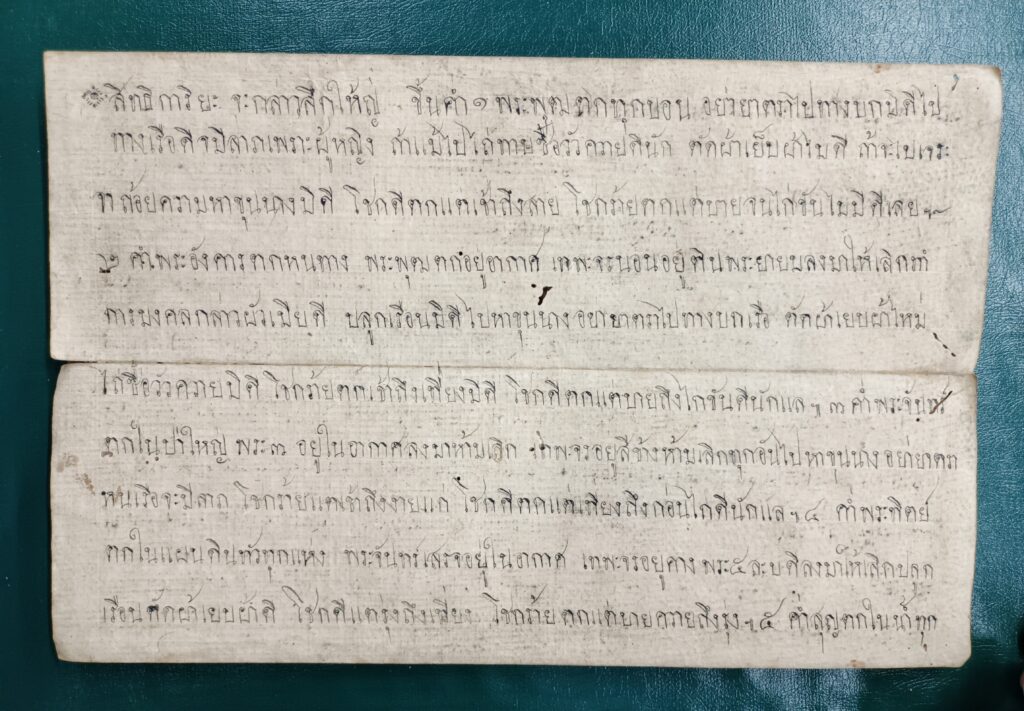 ๏ สิทธิการิยะ จะกล่าวสึกไห้ญู่ ขึ้นคำ ๑ พระพุฒ ตกทุกขอน อย่ายาตราไปทางบกมิดีไป
ทางเรือดีจมีลาภเพราะผู้หญิง ถ้าแม้ไปไถ่ทาษซื้อวัวควายดีนัก ตัดผ้าเย็บผ้าไมดี ถ้าจะเจรจะ
ถ้อยความหาขุนนางมิดี โชกดีตกแตเช้าถึงสาย โชกร้ายตกแตบายจนไก่ขันไมมีดีเลย ฯ
๒ คำพระอังคารตกหนทาง พระพุฒตกอยู่อากาศ เทพะจรนอนอยู่ดิน ลงมาให้เลิกทำ
การมงคลกล่าวผัวเมียดี ปลูกเรือนมิดีไปหาขุนนาง อย่ายาตราไปทางบกเรือ ตัดผ้าเยบผ้าไหม่
ไถ่ซื้อวัวควายมิดี โชกร้ายตกเช้าถึงเที่ยงมิดี โชกดีตกแตบายถึงไกขันดีนักแล ฯ ๓ คำพระจันทร
ตกไนป่าใหญ่ พระ ๓ อยู่ในอากาศลงมาห้ามเลิก เทพะจรอยู่สีข้างห้ามเลิกทุกอันไปหาขุนนาง อย่ายาตรา
เรือจะมีลาภ โชกร้ายแตเช้าถึงงายแก่ โชกดีตกแตเทียงถึงก่อนไกดีนักแล ฯ ๔ คำพระทิตย์
ตกในแผนดินทัวทุกแหง พระจันทรเสรจอยู่ไนอากาศ เทพะจรอยู่คาง พระ ๕ ลงมาไห้เลิกปลูก
เรือนตัดผ้าเยบผ้าดี โชกดีแตรุ่งถึงเทียง โชกร้าย ตกแตบายควายถึงรุง ฯ ๕ ค่ำสุญตกในน้ำทุก